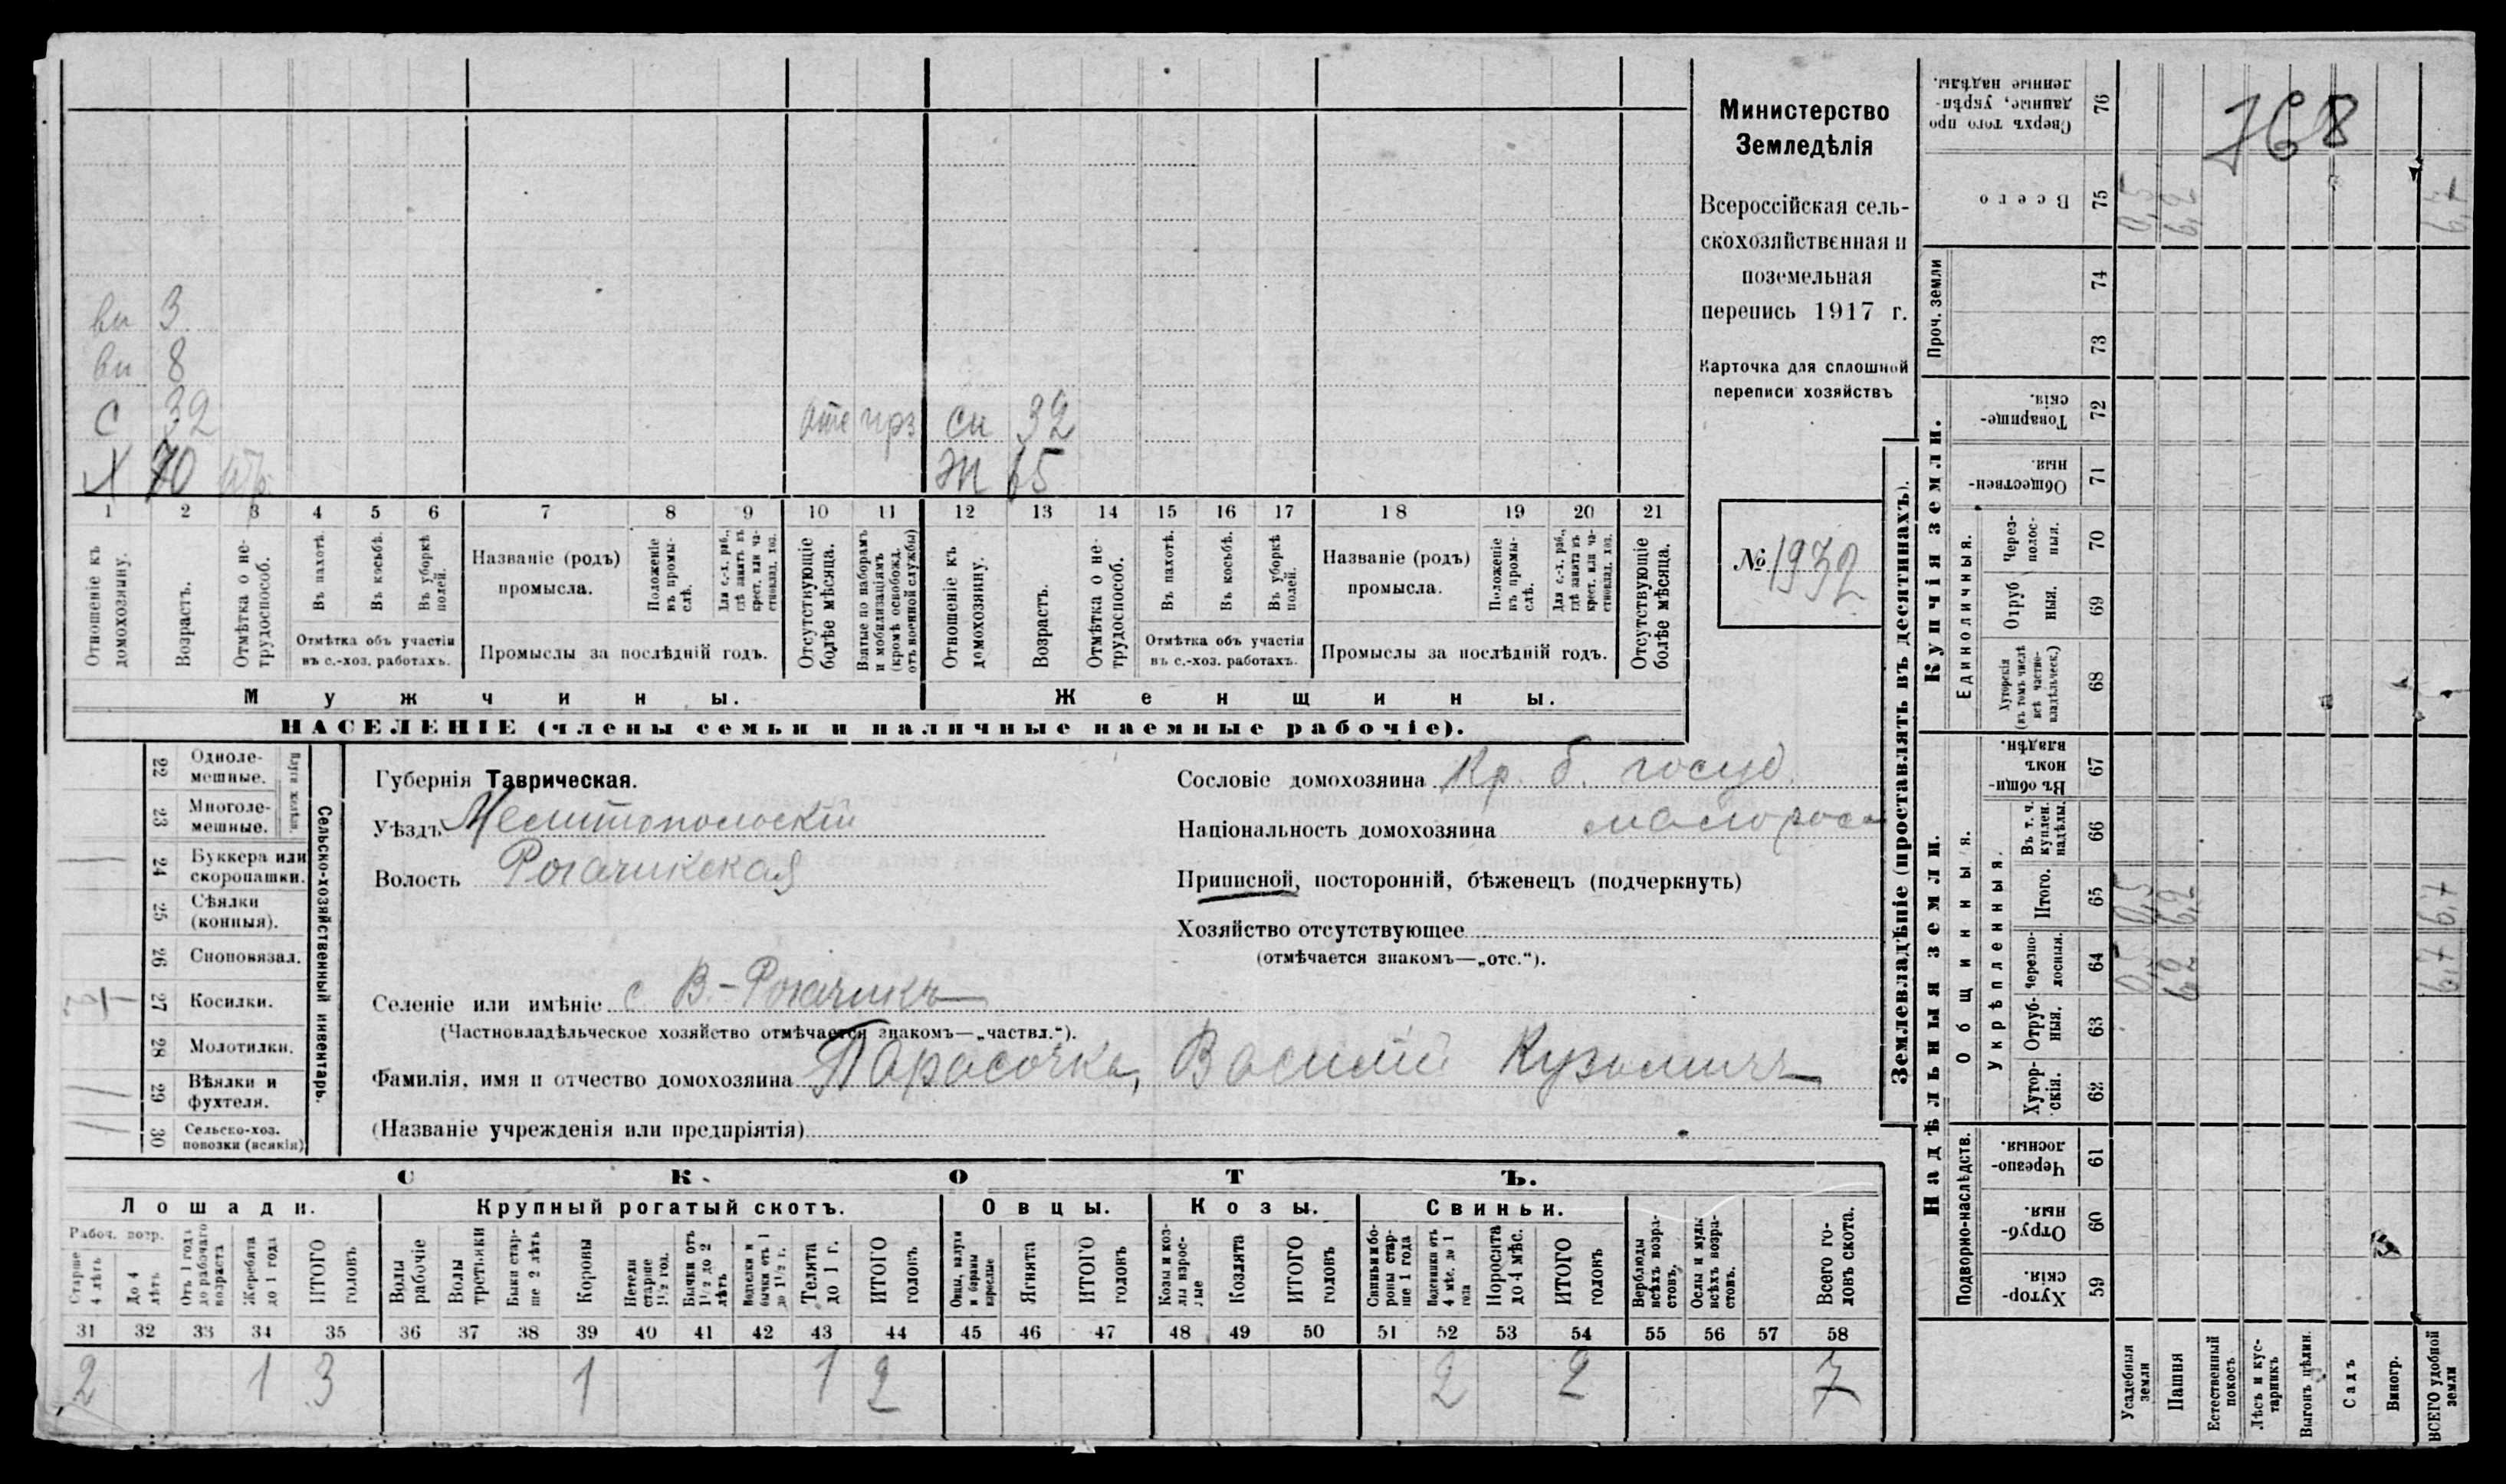 Министерство
Земледѣлія
Всероссійская сель-
скохозяйственная и
поземельная
перепись 1917 г.
Карточка для сплошной
переписи хозяйствъ
№ 1932
768
вн 3
вн 8
с 32 отс прз сн 32
Х 70 ж 65
1 2 3 4 5 6 7 8 9 10 11 12 13 14 15 16 17 18 19 20 21
Отношеніе къ домохозяину.
Возрастъ.
Отмѣтка о не-трудоспособ.
Въ пахотѣ.
Въ косьбѣ.
Въ уборкѣ полей.
Отмѣтка объ участіи
въ с.-хоз. работахъ.
Названіе (родъ)
промысла.
Положеніе въ промы-слѣ.
Для с.-х. раб., гдѣ занятъ въ крест. или ча-стновлад. хоз.
Промыслы за послѣдній годъ.
Отсутствующіе болѣе мѣсяца.
Взятые по наборамъ и мобилизаціямъ (кромѣ освобожд. отъ военной службы)
Отношеніе къ домохозяину.
Возрастъ.
Отмѣтка о не-трудоспособ.
Въ пахотѣ.
Въ косьбѣ.
Въ уборкѣ полей.
Отмѣтка объ участіи
въ с.-хоз. работахъ.
Названіе (родъ)
промысла.
Положеніе въ промы-слѣ.
Для с.-х. раб., гдѣ занята въ крест. или ча-стновлад. хоз.
Промыслы за послѣдній годъ.
Отсутствующіе болѣе мѣсяца.
Мужчины. Женщины.
НАСЕЛЕНІЕ (члены семьи и наличные наемные рабочіе).
Сельско-хозяйственный инвентарь.
22 Одноле-мешные.
23 Многоле-мешные.
24 Буккера или скоропашки.
25 Сѣялки (конныя).
26 Сноповязал.
27 Косилки.
28 Молотилки.
29 Вѣялки и фухтеля.
30 Сельско-хоз. повозки (всякія)
Губернія Таврическая.
Уѣздъ Мелитопольскій
Волость Рогачикская
Селеніе или имѣніе с В.-Рогачикъ
(Частновладѣльческое хозяйство отмѣчается знакомъ—„частвл.“).
Фамилія, имя и отчество домохозяина Парасочка, Василій Кузьмичъ
(Названіе учрежденія или предпріятія)
Сословіе домохозяина Кр. б. госуд.
Національность домохозяина малоросс
Приписной, посторонній, бѣженецъ (подчеркнуть)
Хозяйство отсутствующее
(отмѣчается знакомъ—„отс.“).
СКОТЪ.
Лошади. Крупный рогатый скотъ. Овцы. Козы. Свиньи.
Рабоч. возр.
Старше 4 лѣтъ
До 4 лѣтъ
Отъ 1 года до рабочаго возраста
Жеребята до 1 года
ИТОГО головъ
Волы рабочіе
Волы третьяки
Быки стар-ше 2 лѣтъ
Коровы
Нетели старше 1½ год.
Бычки отъ 1½ до 2 лѣтъ
Подтелки и бычки отъ 1 до 1½ г.
Телята до 1 г.
ИТОГО головъ
Овцы, валухи и бараны взрослые
Ягнята
ИТОГО головъ
Козы и коз-лы взрос-лые
Козлята
ИТОГО головъ
Свиньи и бо-ровы стар-ше 1 года
Подсвинки отъ 4 мѣс. до 1 года
Поросята до 4 мѣс.
ИТОГО головъ
Верблюды всѣхъ возра-стовъ.
Ослы и мулы всѣхъ возра-стовъ.
Всего го-ловъ скота.
31 32 33 34 35 36 37 38 39 40 41 42 43 44 45 46 47 48 49 50 51 52 53 54 55 56 57 58
2 1 3 1 1 2 2 2 7
Землевладѣніе (проставлять въ десятинахъ).
Купчія земли.
Надѣльныя земли.
Проч. земли
Единоличныя.
Общинныя.
Укрѣпленныя.
Подворно-наслѣдств.
Сверхъ того про данные, укрѣп-ленные надѣлы. 76
Всего 75 0,5 6,2 6,7
74
73
Товарище-скія. 72
Обществен-ныя. 71
Через-полос-ныя. 70
Отруб ныя. 69
Хуторскія (въ томъ числѣ всѣ частно-владѣльческ.) 68
Въ общи-номъ владѣн. 67
Въ т. ч. куплен. надѣлы. 66
Итого. 65 0,5 6,2 6,7
Черезпо-лосныя. 64 0,5 6,2 6,7
Отруб-ныя. 63
Хутор-скія. 62
Черезпо-лосныя. 61
Отруб-ныя. 60
Хутор-скія. 59
Усадебныя земли
Пашня
Естественный покосъ
Лѣсъ и кус-тарникъ
Выгонъ цѣлин.
Садъ
Виногр.
ВСЕГО удобной земли